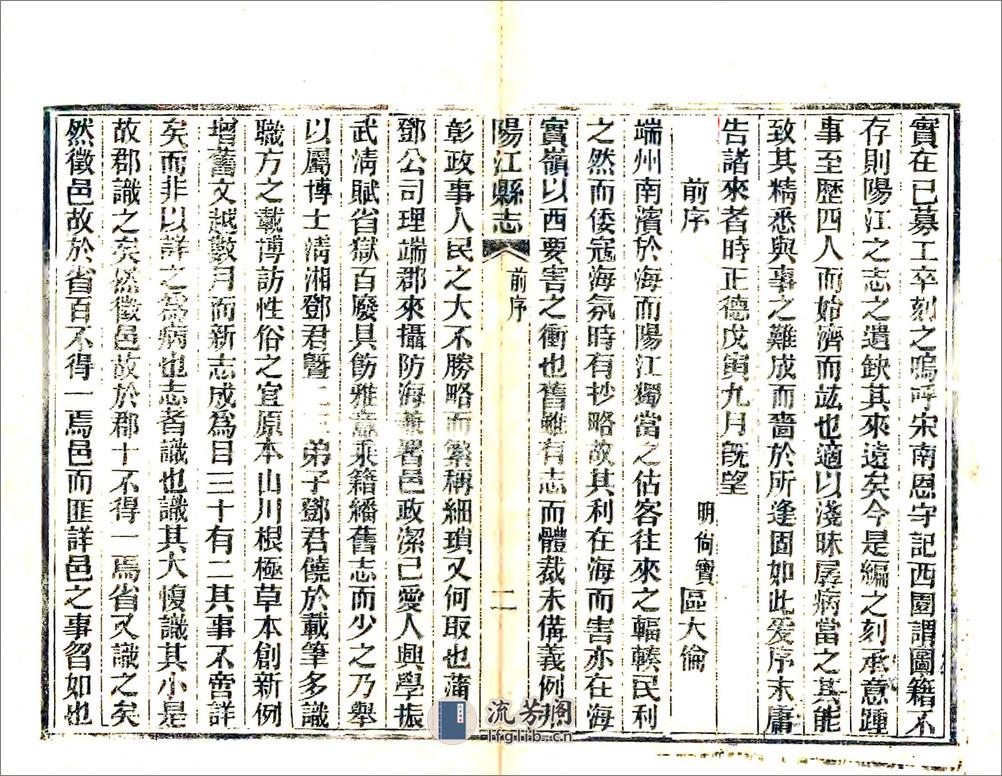 實在已募工卒刻之嗚呼宋南恩守記西園謂圖籍不
存則陽江之志之遺缺其來遠矣今是編之刻承意踵
事至歷四人而始濟而茲也適以淺昧孱病當之其能
致其精悉與事之難成而嗇於所逢固如此爰序末庸
告諸來者時正德戊寅九月旣望
前序
明尙寶區大倫
端州南濱於海而陽江獨當之估客往來之輻輳民利
之然而倭寇海氛時有抄略故其利在海而害亦在海
實嶺以西要害之衝也舊雖有志而體裁未備義例
陽江縣志
前序
二
彰政事人民之大不勝略而繁稱細瑣又何取也蒲
鄧公司理端郡來攝防海兼署邑政潔己愛人興學振
武淸賦省獄百廢具飭雅意乘籍繙舊志而少之乃舉
以屬博士淸湘鄧君暨二三弟子鄧君饒於載筆多識
職方之載博訪性俗之宜原本山川根極草木創新例
增舊文越數月而新志成爲目三十有二其事不啻詳
矣而非以詳之爲病也志者識也識其大愎識其小是
故郡識之矣然徵邑故於郡十不得一焉省又識之矣
然徵邑故於省百不得一焉邑而匪詳邑之事曶如也
流芳阁
lfglib.cn